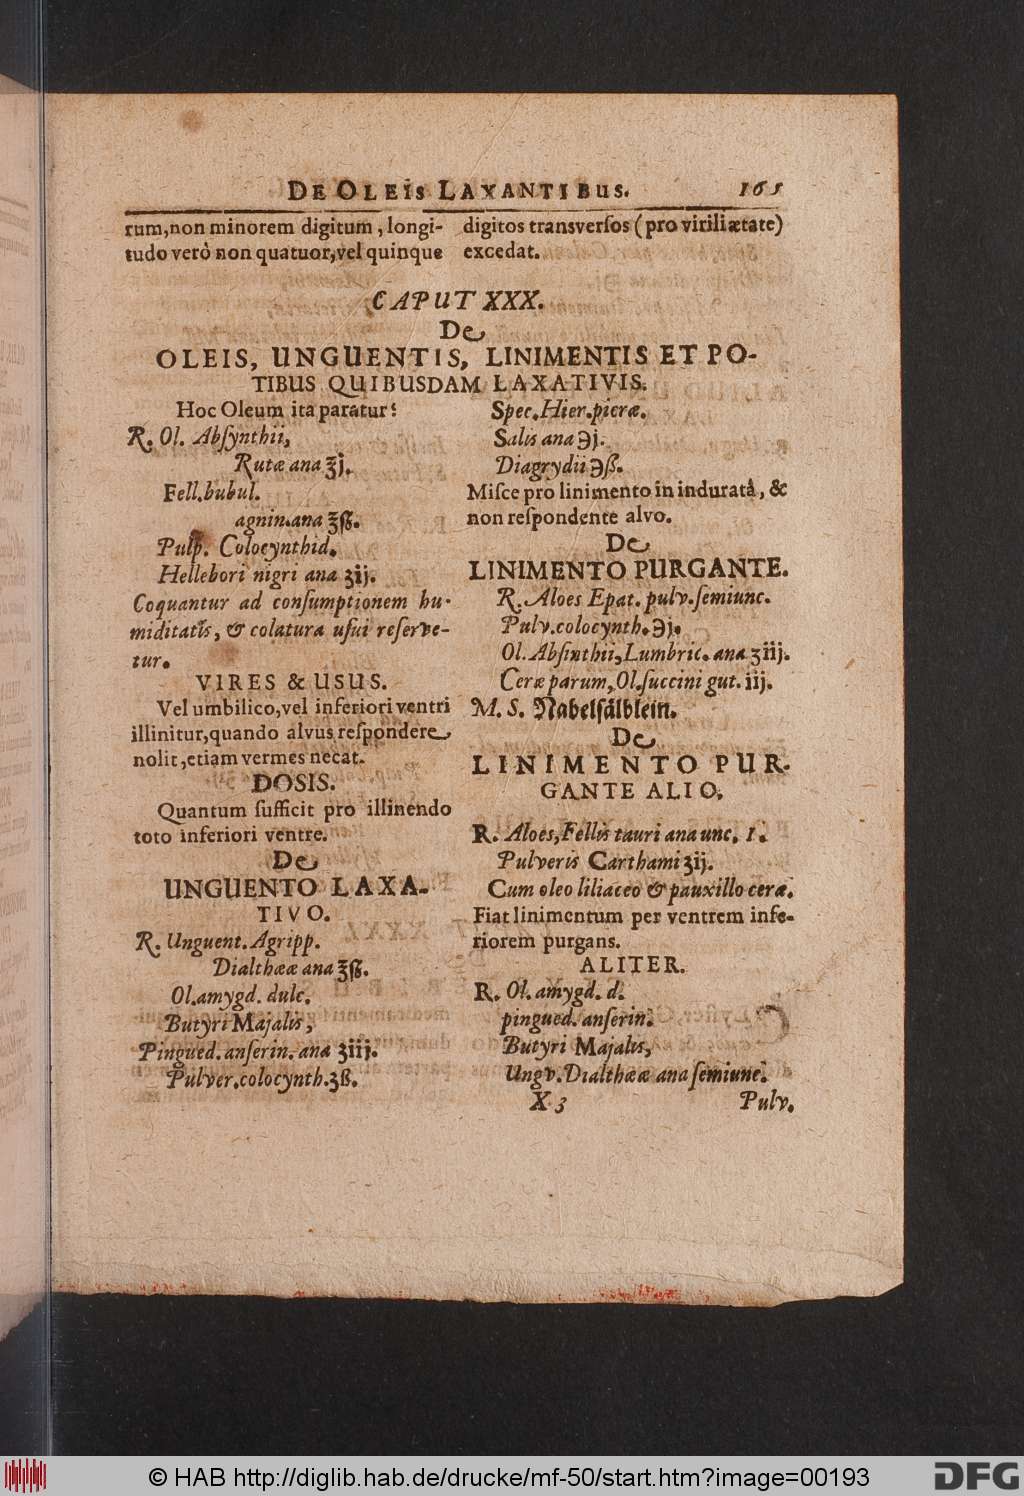 DE OLEIS LAXANTIBUS. 165
rum, non minorem digitum, longi-
tudo verò non quatuor, vel quinque
digitos transversos (pro virili ætate)
excedat.
CAPUT XXX.
De
OLEIS, UNGUENTIS, LINIMENTIS ET PO-
TIBUS QUIBUSDAM LAXATIVIS.
Hoc Oleum ita paratur:
R. Ol. Absynthii,
Rutæ ana ℥j.
Fell. bubul.
agnin. ana ℥ß.
Pulp. Colocynthid.
Hellebori nigri ana ʒij.
Coquantur ad consumptionem hu-
miditatis, & colatura usui reserve-
tur.
VIRES & USUS.
Vel umbilico, vel inferiori ventri
illinitur, quando alvus respondere
nolit, etiam vermes necat.
DOSIS.
Quantum sufficit pro illinendo
toto inferiori ventre.
De
UNGUENTO LAXA-
TIVO.
R. Unguent. Agripp.
Dialthææ ana ℥ß.
Ol. amygd. dulc.
Butyri Majalis,
Pingued. anserin. ana ʒiij.
Pulver. colocynth. ʒß.
Spec. Hier. picræ.
Salis ana ℈j.
Diagrydii ℈ß.
Misce pro linimento in induratâ, &
non respondente alvo.
De
LINIMENTO PURGANTE.
R. Aloes Epat. pulv. semiunc.
Pulv. colocynth. ℈j.
Ol. Absinthii, Lumbric. ana ʒiij.
Ceræ parum, Ol. succini gut. iij.
M. S. Nabelsälblein.
De
LINIMENTO PUR-
GANTE ALIO.
R. Aloes, Fellis tauri ana unc. 1.
Pulveris Carthami ʒij.
Cum oleo liliaceo & pauxillo ceræ.
Fiat linimentum per ventrem infe-
riorem purgans.
ALITER.
R. Ol. amygd. d.
pingued. anserin.
Butyri Majalis,
Ungv. Dialthææ ana semiunc.
X 3 Pulv.
© HAB http://diglib.hab.de/drucke/mf-50/start.htm?image=00193
DFG